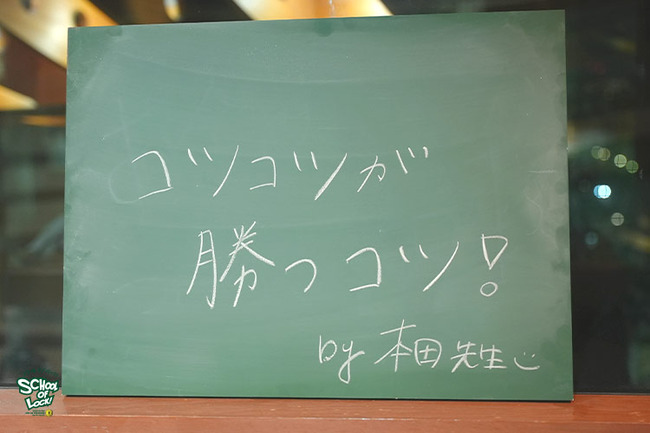 コツコツが
勝つコツ!
by 本田先生
SCHOOL
OF
LOCK!